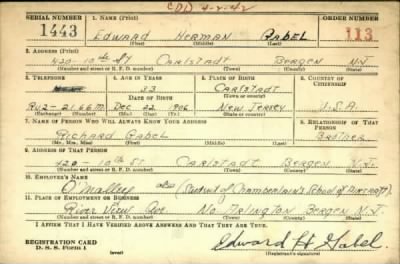 CDD 4-2-42
SERIAL NUMBER 1. NAME (Print) ORDER NUMBER
1443 EDWARD HERMAN GABEL 113
(First) (Middle) (Last)
2. ADDRESS (Print)
420-10th St CARLSTADT BERGEN N.J.
(Number and street or R. F. D. number) (Town) (County) (State)
3. TELEPHONE 4. AGE IN YEARS 5. PLACE OF BIRTH 6. COUNTRY OF CITIZENSHIP
33 CARLSTADT
DATE OF BIRTH (Town or county)
Ru2-2166M. DEC 22 1906 NEW JERSEY U.S.A.
(Exchange) (No.) (Mo.) (Day) (Yr.) (State or country)
7. NAME OF PERSON WHO WILL ALWAYS KNOW YOUR ADDRESS 8. RELATIONSHIP OF THAT PERSON
RICHARD GABEL BROTHER
(Mr., Mrs., Miss) (First) (Middle) (Last)
9. ADDRESS OF THAT PERSON
420-10th ST. CARLSTADT BERGEN N.J.
(Number and street or R. F. D. number) (Town) (County) (State)
10. EMPLOYER'S NAME
O'Malley also (Student of Chamberlain's School of Aircraft)
11. PLACE OF EMPLOYMENT OR BUSINESS
River View Ave No. Arlington Bergen N.J.
(Number and street or R. F. D. number) (Town) (County) (State)
I AFFIRM THAT I HAVE VERIFIED ABOVE ANSWERS AND THAT THEY ARE TRUE.
REGISTRATION CARD
D. S. S. Form 1 (over) Edward H Gabel.
(Registrant's signature)